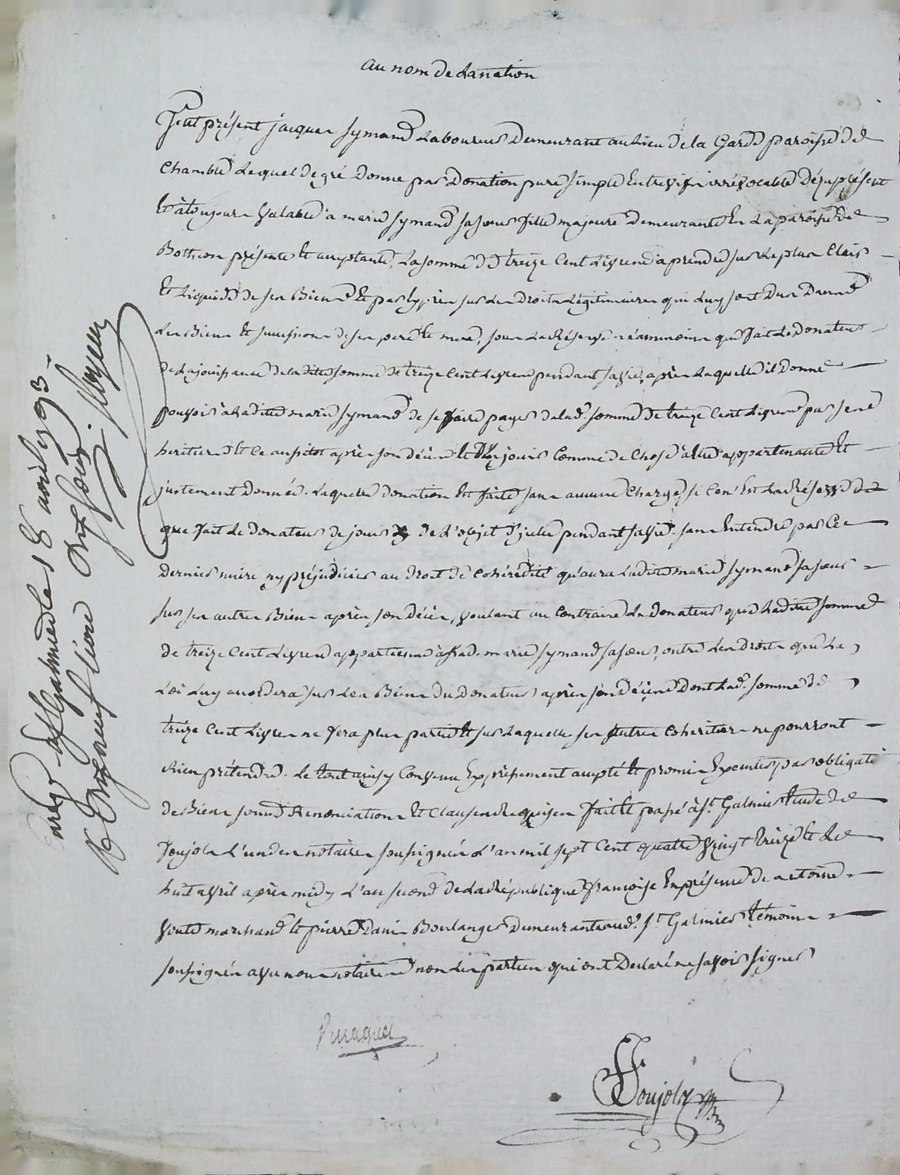 au nom de la nation
fut présent jacques symand Laboureur Demeurant au Lieu de la Garde paroisse de
Chambles Lequel de gré Donne par Donation pure simple Entrevifs irrévocable Dez aprésent
Et à toujours valable à marie symand sa sœur fille majeure Demeurante En la paroisse de
Botheon présente et acceptante, La somme de treize Cent Livres à prendre sur Le plus Clair
Et Liquide de ses Biens Et par exprès sur Les Droits Légitimaires qui luy sont Dus Dans
Les Biens Et successions de ses pere Et mere, sous La Réserve néanmoins que fait Le Donateur
De La jouissance de La dite somme de treize Cent Livres pendant sa vie, après Laquelle il Donne
pouvoir à La dite marie symand de se faire payer de lad. somme de treize Cent Livres par ses
heritiers Et Ce aussitot après son décès Et D'en jouir Comme de Chose à Elle appartenante Et
justement Donnée. Laquelle donation Est faite sans aucune Charge, si Ce n'Est La Réserve
que fait Le Donateur de jouir de L'objet D'icelle pendant sa vie, sans Entendre par Ce
Dernier nuire ny préjudicier au Droit de Cohéredité qu'aura La dite marie symand sa sœur
sur ses autres Biens après son décès, voulant au Contraire Le Donateur que La dite somme
de treize Cent Livres appartienne à sad. marie symand sa sœur, outre Les Droits que La
Loi Luy accordera sur Les Biens du Donateur après son décès Dont Lad. somme de
treize Cent Livres ne fera plus partie Et sur Laquelle ses autres Cohéritiers ne pourront
Rien prétendre. Le tout ainsy Convenu Expressement accepté Et promis Executer par obligation
de Biens soumis Renonciations Et Clauses de Requises fait Et passé à St. Galmier Etude de
Soujols L'un des notaires soussignés L'an mil sept Cent quatre vingt treize Et Le
huit avril après midy L'an second de La République françoise En présence de antoine
marchand Et pierre Boulanger Demeurants aud. St. Galmier témoins
soussignés avec nous notaires non Les parties qui ont Declaré ne savoir signer
Soujols
Enreg. à St Galmier le 18 avril 1793
R. livres dix sols